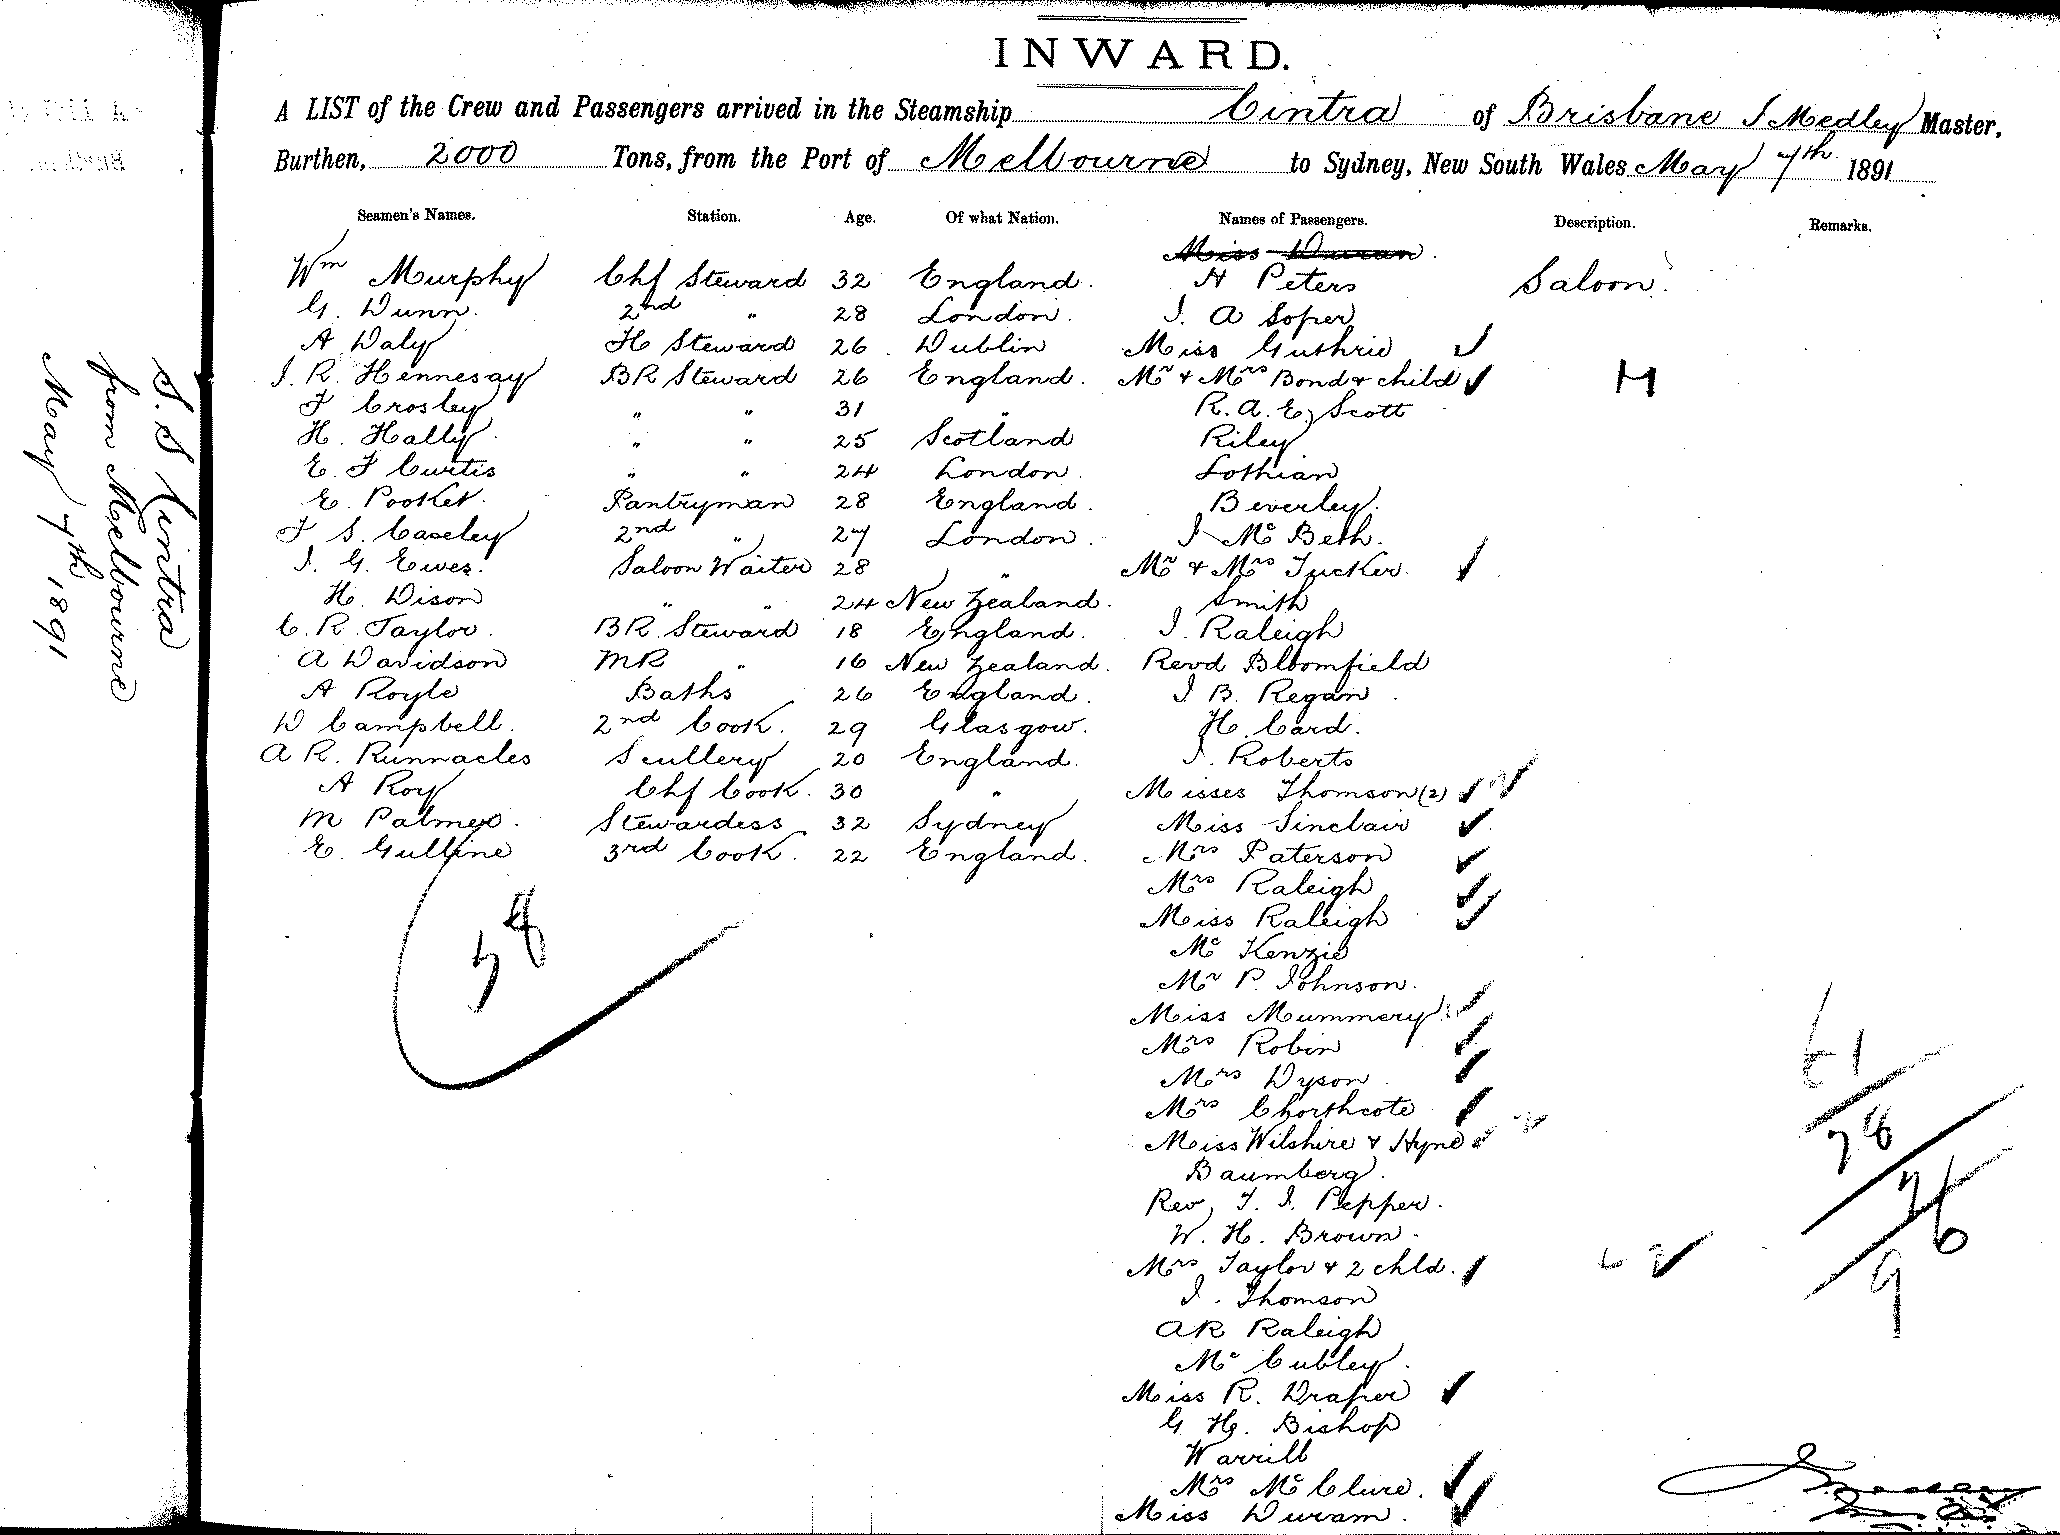 INWARD.
A LIST of the Crew and Passengers arrived in the Steamship Cintra of Brisbane J Medley Master,
Burthen, 2000 Tons, from the Port of Melbourne to Sydney, New South Wales May 7th 1891
Seamen's Names. Station. Age. Of what Nation. Names of Passengers. Description. Remarks.
Miss Duran.
Wm Murphy Chf Steward 32 England. H Peters Saloon.
G. Dunn. 2nd " 28 London. J. A Soper
A Daly H Steward 26 Dublin Miss Guthrie
J. R. Hennesay BR Steward 26 England. Mr & Mrs Bond & child
F Crosley " " 31 " R. A. E. Scott
H. Hally. " " 25 Scotland Riley
E. F Curtis " " 24 London. Lothian
E. Pooket. Pantryman 28 England. Beverley.
F S. Caseley 2nd " 27 London. J Mc Beth.
J. G. Ewes. Saloon Waiter 28 " Mr & Mrs Tucker.
H. Dison " " 24 New Zealand. Smith
C. R. Taylor. BR. Steward 18 England. J. Raleigh
A Davidson MR " 16 New Zealand. Revd Bloomfield
A Royle Baths 26 England. J B. Regan.
D Campbell. 2nd Cook. 29 Glasgow. H. Card.
A R. Runnacles Scullery 20 England. J. Roberts
A Roy Chf Cook. 30 " Misses Thomson (2)
M Palmer. Stewardess 32 Sydney Miss Sinclair
E. Gulline 3rd Cook. 22 England. Mrs Paterson
Mrs Raleigh
Miss Raleigh
Mc Kenzie
Mr P. Johnson.
Miss Mummery
Mrs Robin
Mrs Dyson
Mrs Chorthcote
Miss Wilshire & Hyne
Baumberg.
Rev, T. J. Pepper.
W. H. Brown.
Mrs Taylor & 2 chld.
J. Thomson
AR Raleigh
Mc Cubley.
Miss R. Draper
G H. Bishop
Warrill
Mrs Mc Clure.
Miss Duram.
S. S Cintra
from Melbourne
May 7th 1891